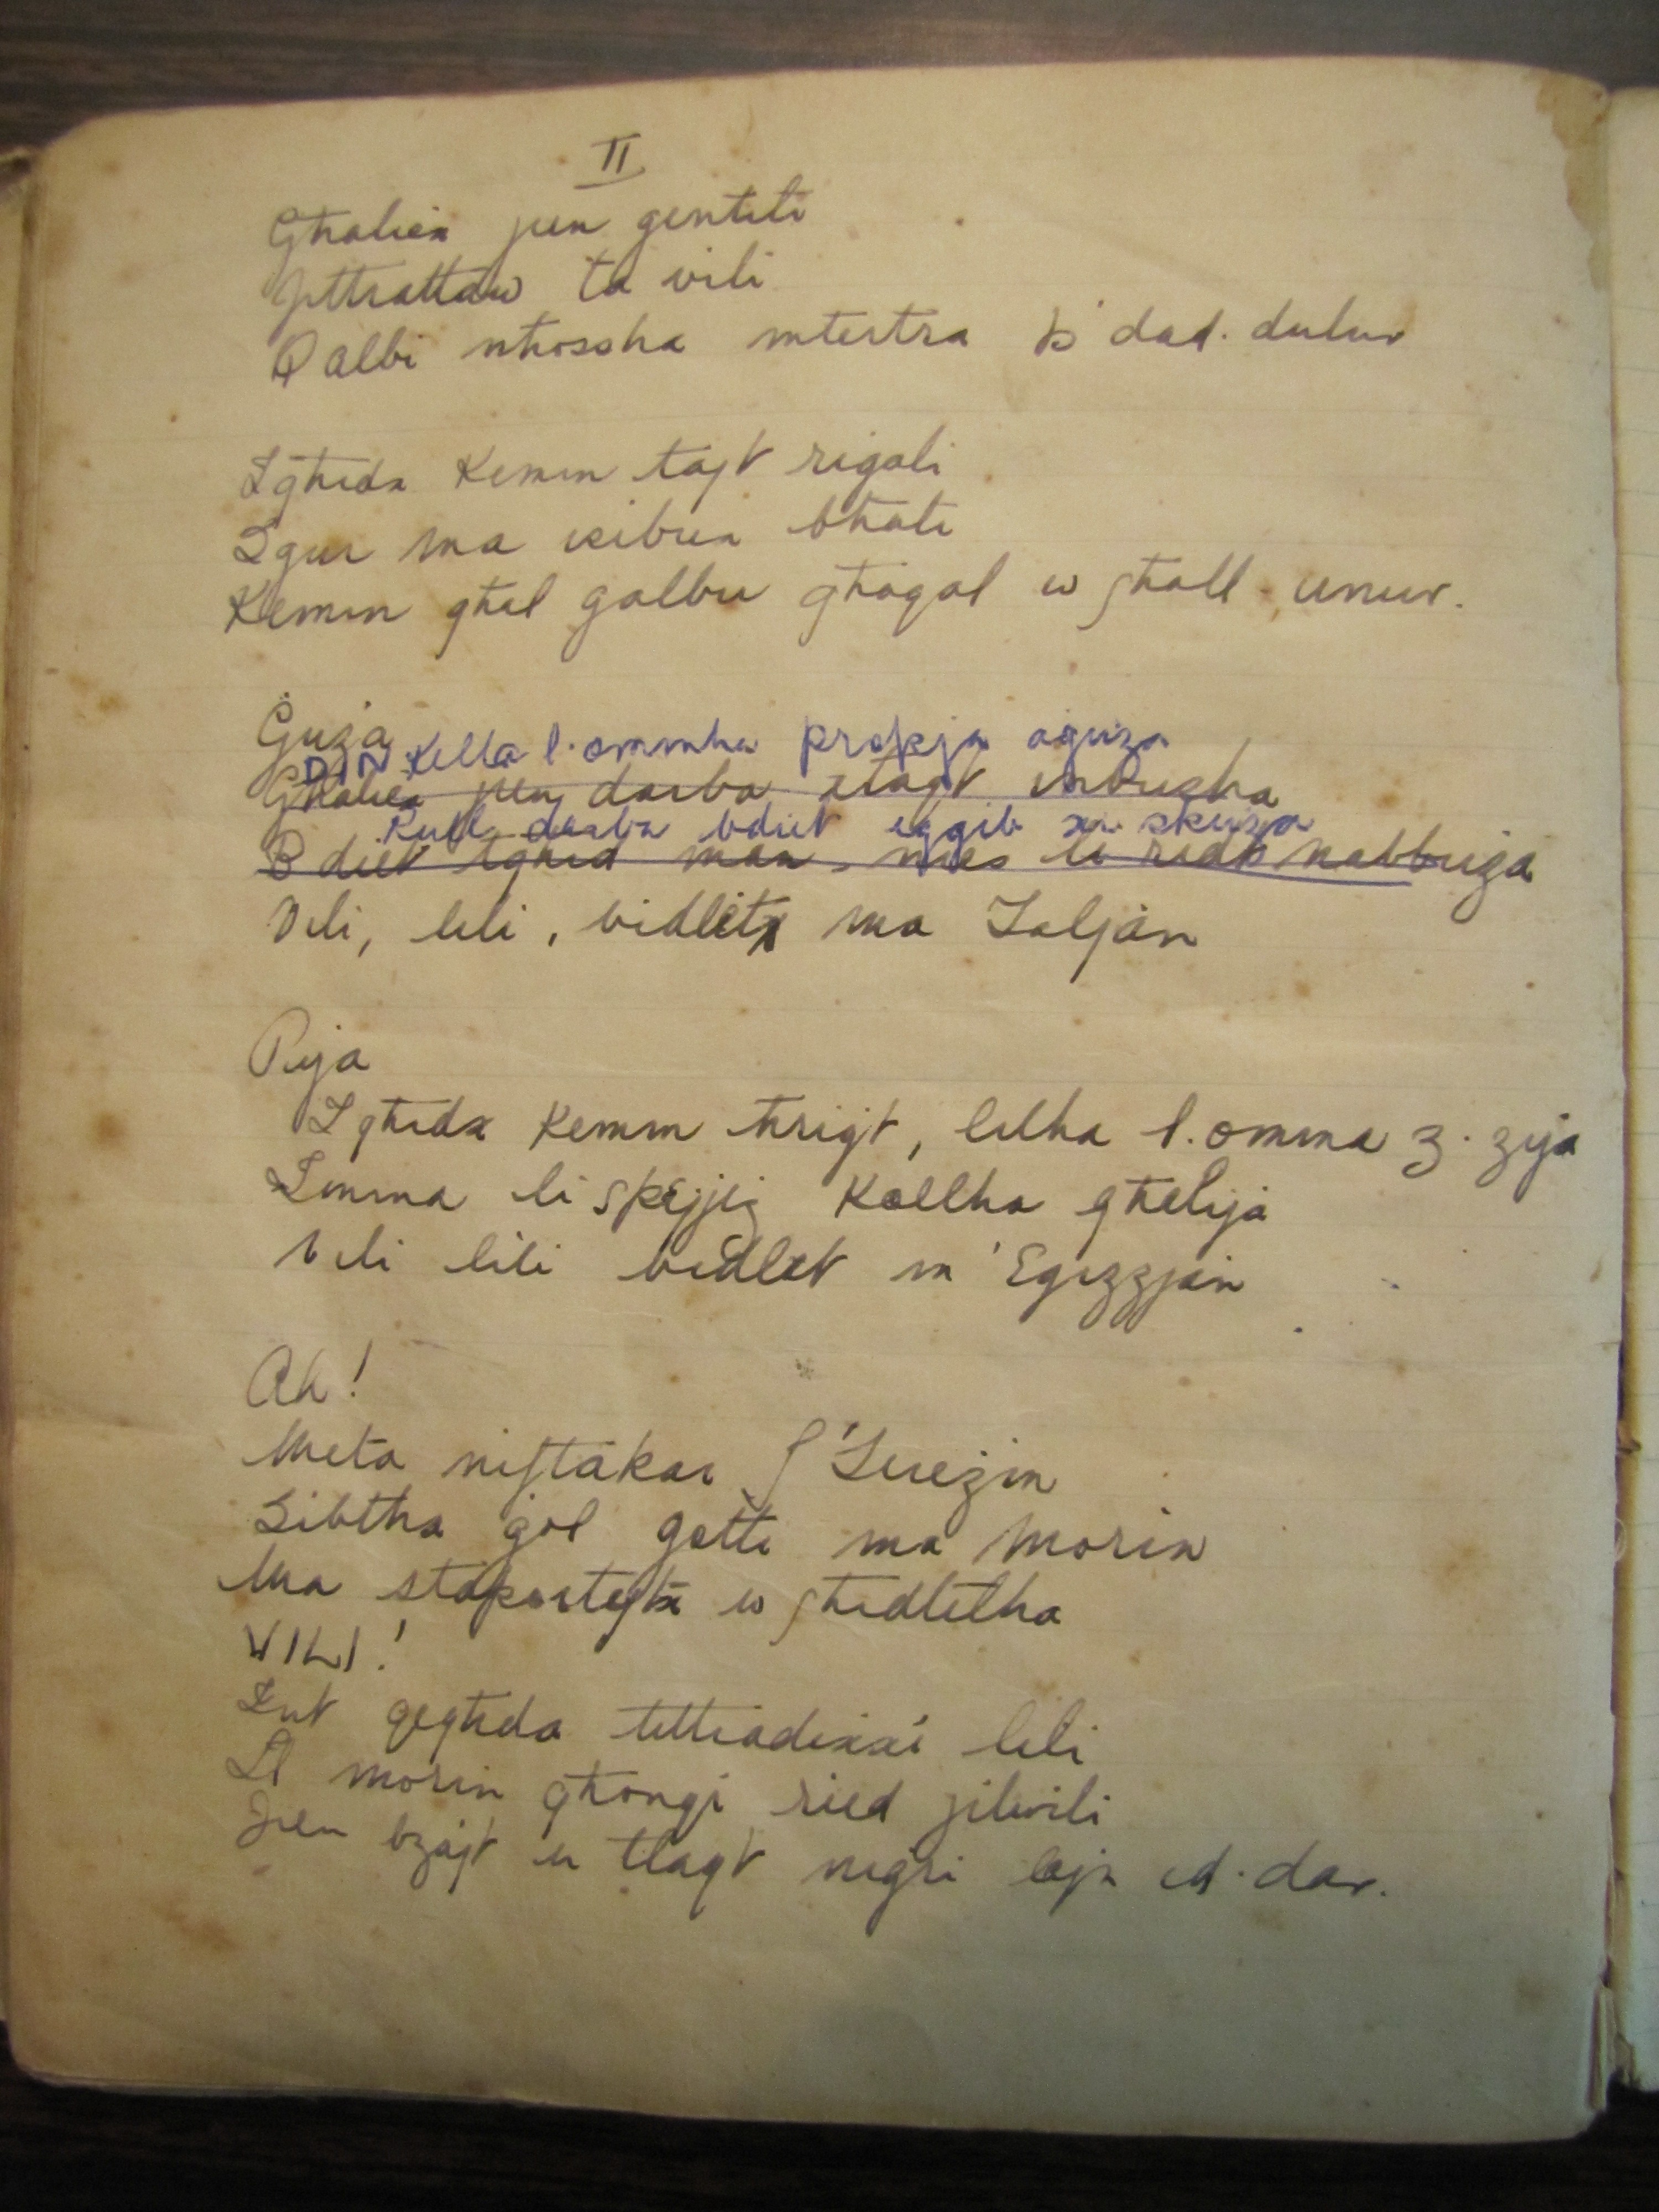 II
Għaliex jien gentili
Jittrattaw ta vili
Qalbi nħossha mtertra b' dad. dulur
Igħidx kemm tajt rigali
Igur ma xibux bħali
Kemm għal qalbu għaqal w għall unur.
Ġuża
DIN Kella l. ommha propja aguza
Għaliex jien darba xtaqt inbusha
Kull darba bdiet eġġib xi skuża
Bdiet tgħid man nies li rida nabbuża
Vili, lili, bidlitx ma Taljan
Pija
Igħidx kemm ħriġt, lilha l. omma z. zija
Imma li spejjiż kollha għalija
Vili lili bidlet m' Egizzjan
Ah!
Meta niftakar f' Terezin
Sibtha ġol gotti ma Morin
Ma staportejtx w għedtilha
VILI!
Int qegħda tittradixxi lili
Il morin għonqi ried jilwili
Jien bzajt u tlaqt niġri lejn id. dar.